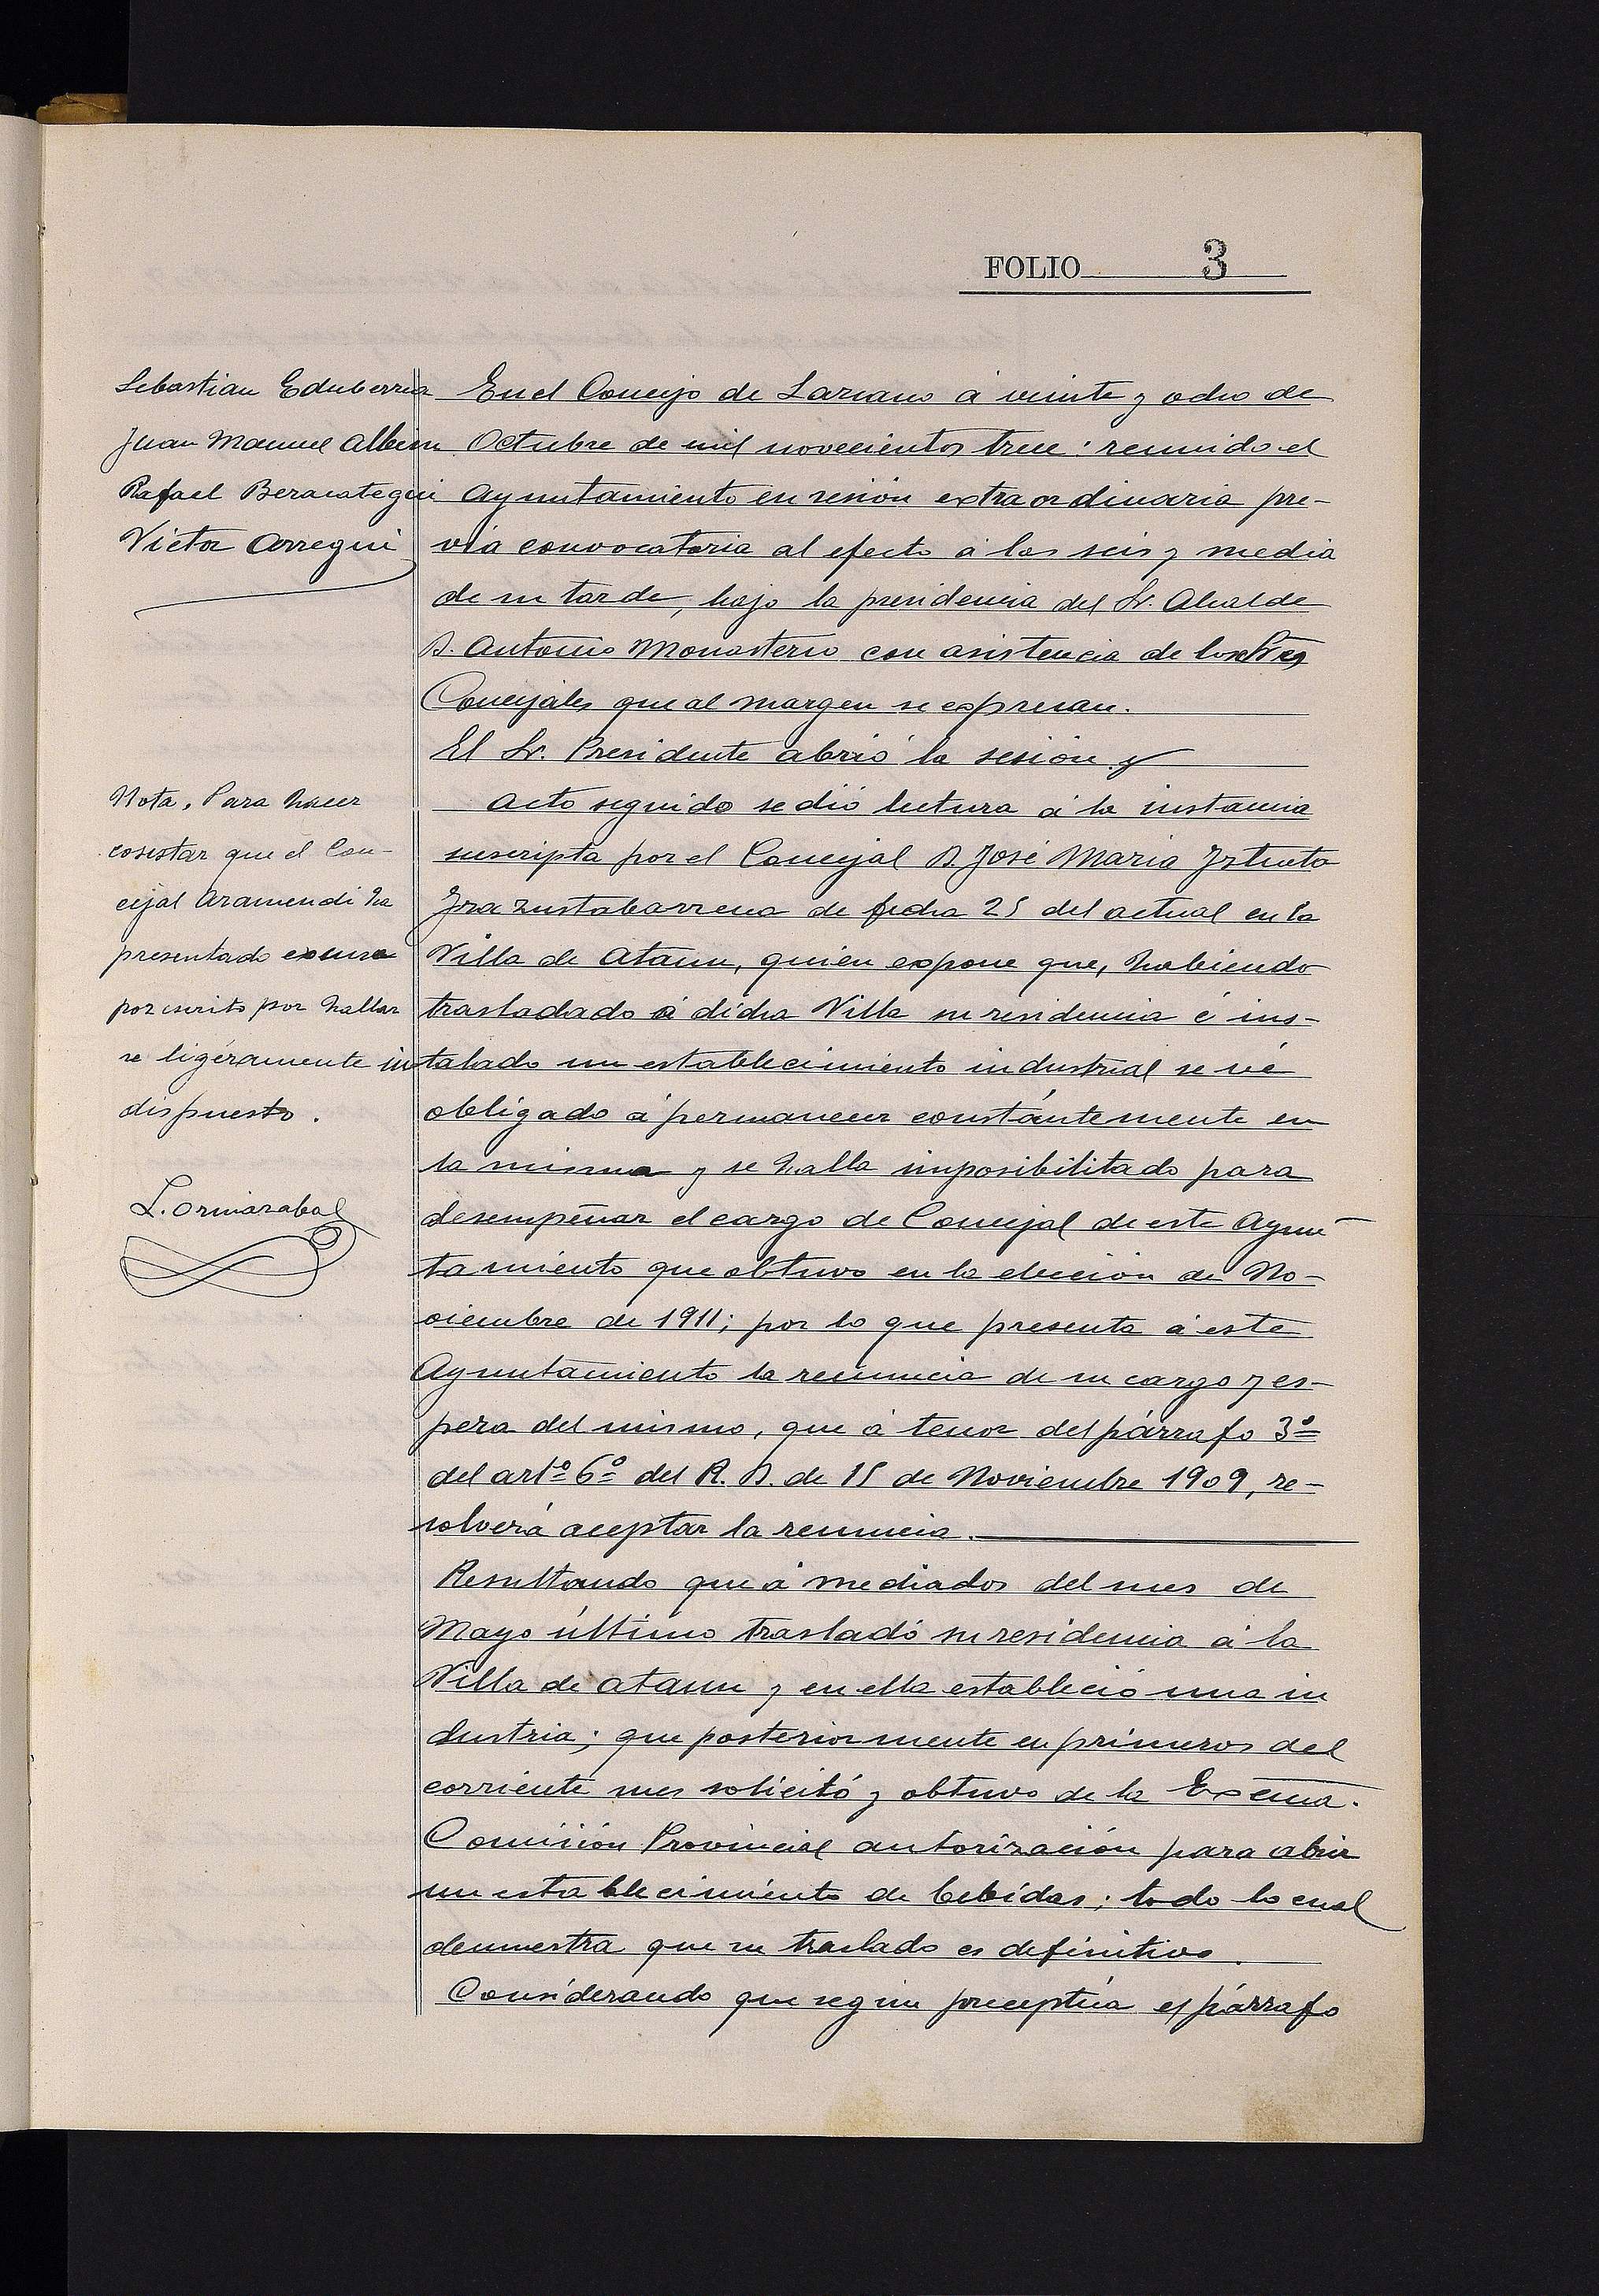 FOLIO 3
Sebastian Echeberria
Juan Manuel Albisu
Rafael Beracategui
Victor Arregui
En el Concejo de Lazcano á veinte y ocho de
Octubre de mil novecientos trece: reunido el
Ayuntamiento en sesión extraordinaria pre-
via convocatoria al efecto á las seis y media
de su tarde, bajo la presidencia del Sr. Alcalde
D. Antonio Monasterio con asistencia de los Sres
Concejales que al margen se expresan.
El Sr. Presidente abrió la sesión y
Nota. Para hacer
cosistar que el Con-
cejal Aramendi ha
presentado excusa
por escrito por hallar
se ligéramente in
dispuesto.
L. Ormazabal
Acto seguido se dió lectura á la instancia
suscripta por el Concejal D. José Maria Iztueta
Irazustabarrena de fecha 25 del actual en la
Villa de Ataun, quien expone que, habiendo
trasladado á dicha Villa su residencia é ins-
talado un establecimiento industrial se vé
obligado á permanecer constántemente en
la misma y se halla imposibilitado para
desempeñar el cargo de Concejal de este Ayun
tamiento que obtuvo en la elección de No-
viembre de 1911; por lo que presenta á este
Ayuntamiento la renuncia de su cargo y es-
pera del mismo, que á tenor del párrafo 3º
del artº 6º del R. D. de 15 de Noviembre 1909, re-
solverá aceptar la renuncia.
Resultando que á mediados del mes de
Mayo último trasladó su residencia á la
Villa de Ataun y en ella estableció una in
dustria; que posteriormente en primeros del
corriente mes solicitó y obtuvo de la Excma.
Comisión Provincial autorización para abrir
un establecimiento de bebidas; todo lo cual
demuestra que su traslado es definitivo.
Considerando que según preceptúa el párrafo